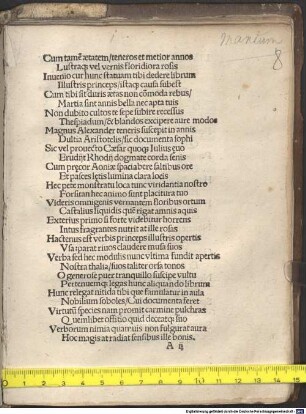 Cum tamē ætatem/teneros et metior annos
Lustraqȝ vel vernis floridiora rosis
Inuenio cur hunc statuam tibi dedere librum
Illustris princeps/istaqȝ causa subest
Cum tibi sit duris ætas non cōmoda rebus/
Martia sint annis bella necapta tuis
Non dubito cultos te sepe subire recessus
Thespiadum/& blandos excipere aure modos
Magnus Alexander teneris suscepit in annis
Dulcia Aristotelis/sic documenta sophi
Sic vel prouecto Cæsar quoqȝ Iulius æuo
Erudijt Rhodij dogmate corda senis
Cum precor Aoniæ spaciabere saltibus oræ
Et pasces lętis lumina clara locis
Hec pete monstratu loca nunc viridantia nostro
Forsitan hec animo sunt placitura tuo
Videris omnigenis vernantem floribus ortum
Castalius liquidis quē rigat amnis aquis
Exterius primo si forte videbitur horrens
Intus fragrantes nutrit at ille rosas
Hactenus est verbis princeps illustris opertis
Vsa parat riuos claudere musa suos
Verba sed hec modulis nunc vltima fundit apertis
Nostra thalia/suos taliter orsa tonos
O generose puer tranquillo suscipe vultu
Perteneumqȝ legas hunc aliquando librum
Hunc relegat nitida tibi que famulatur in aula
Nobilium soboles/Cui documenta feret
Virtutū species nam promit carmine pulchras
Quemlibet officio quid deceatqȝ suo
Verborum nimia quamuis non fulgurat aura
Hoc magis at radiat sensibus ille bonis.
A ij
8
1 2 3 4 5 6 7 8 9 10 11 12 13 14 15